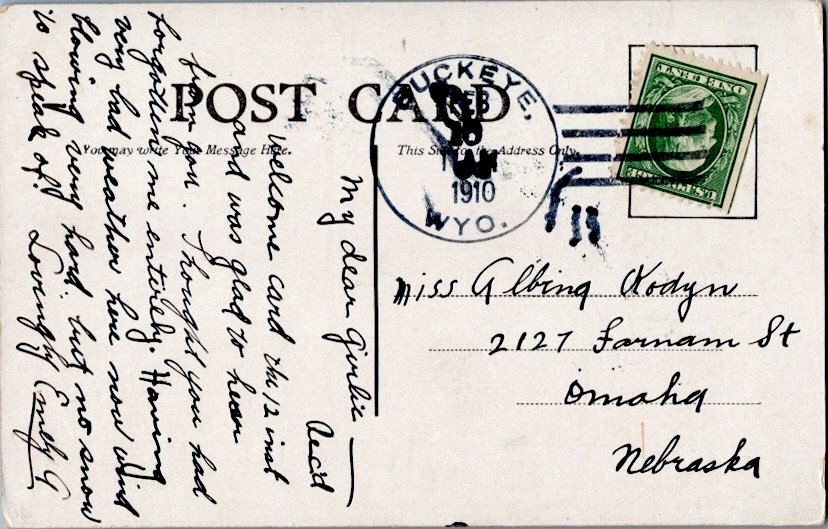 POST CARD
You may write Your Message Here.
This Side for the Address Only.
BUCKEYE,
FEB
1910
WYO.
ONE CENT
U.S. POSTAGE
My dear Girlie
Rec'd
welcome card the 12 inst
and was glad to hear
from you. Thought you had
forgotten me entirely. Having
very bad weather here now wind
blowing very hard. but no snow
to speak of. Lovingly Emily G
Miss Albina Kodyn
2127 Farnam St
Omaha
Nebraska